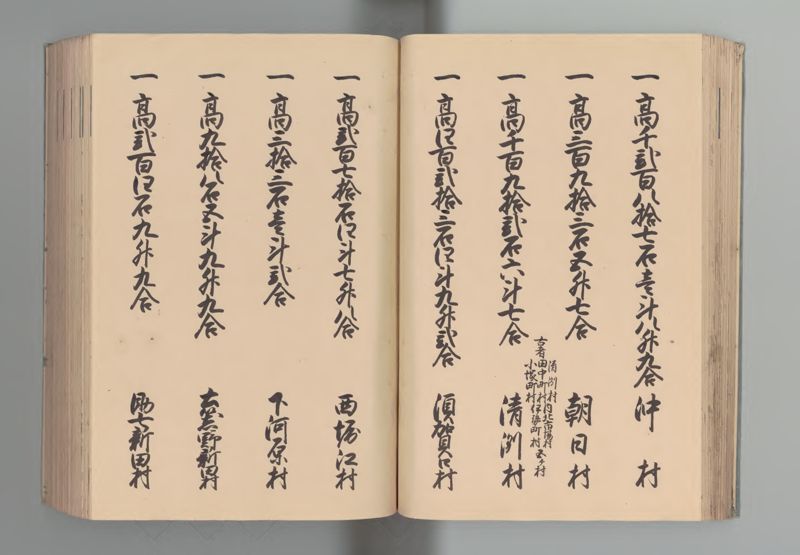 一高千弐百八拾七石壱斗八升九合 沖村
一高三百九拾三石五升七合 朝日村
一高千百九拾弐石六斗七合 清洲村
清洲村内北市場村
古者田中町村伊勢町村五ケ村
小塚町村
一高四百弐拾三石四斗九升弐合 須賀口村
一高弐百七拾石四斗七升八合 西堀江村
一高三拾三石壱斗弐合 下河原村
一高九拾八石五斗九升九合 新田村
一高弐百四石九升九合 助七新田村